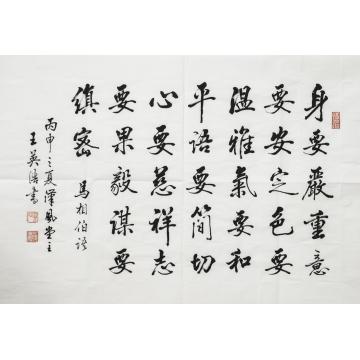 身要嚴重意
要安定色要
溫雅氣要和
平語要簡切
心要慈祥志
要果毅謀要
縝密
馬相伯語
丙申之夏漢風堂主
王英書